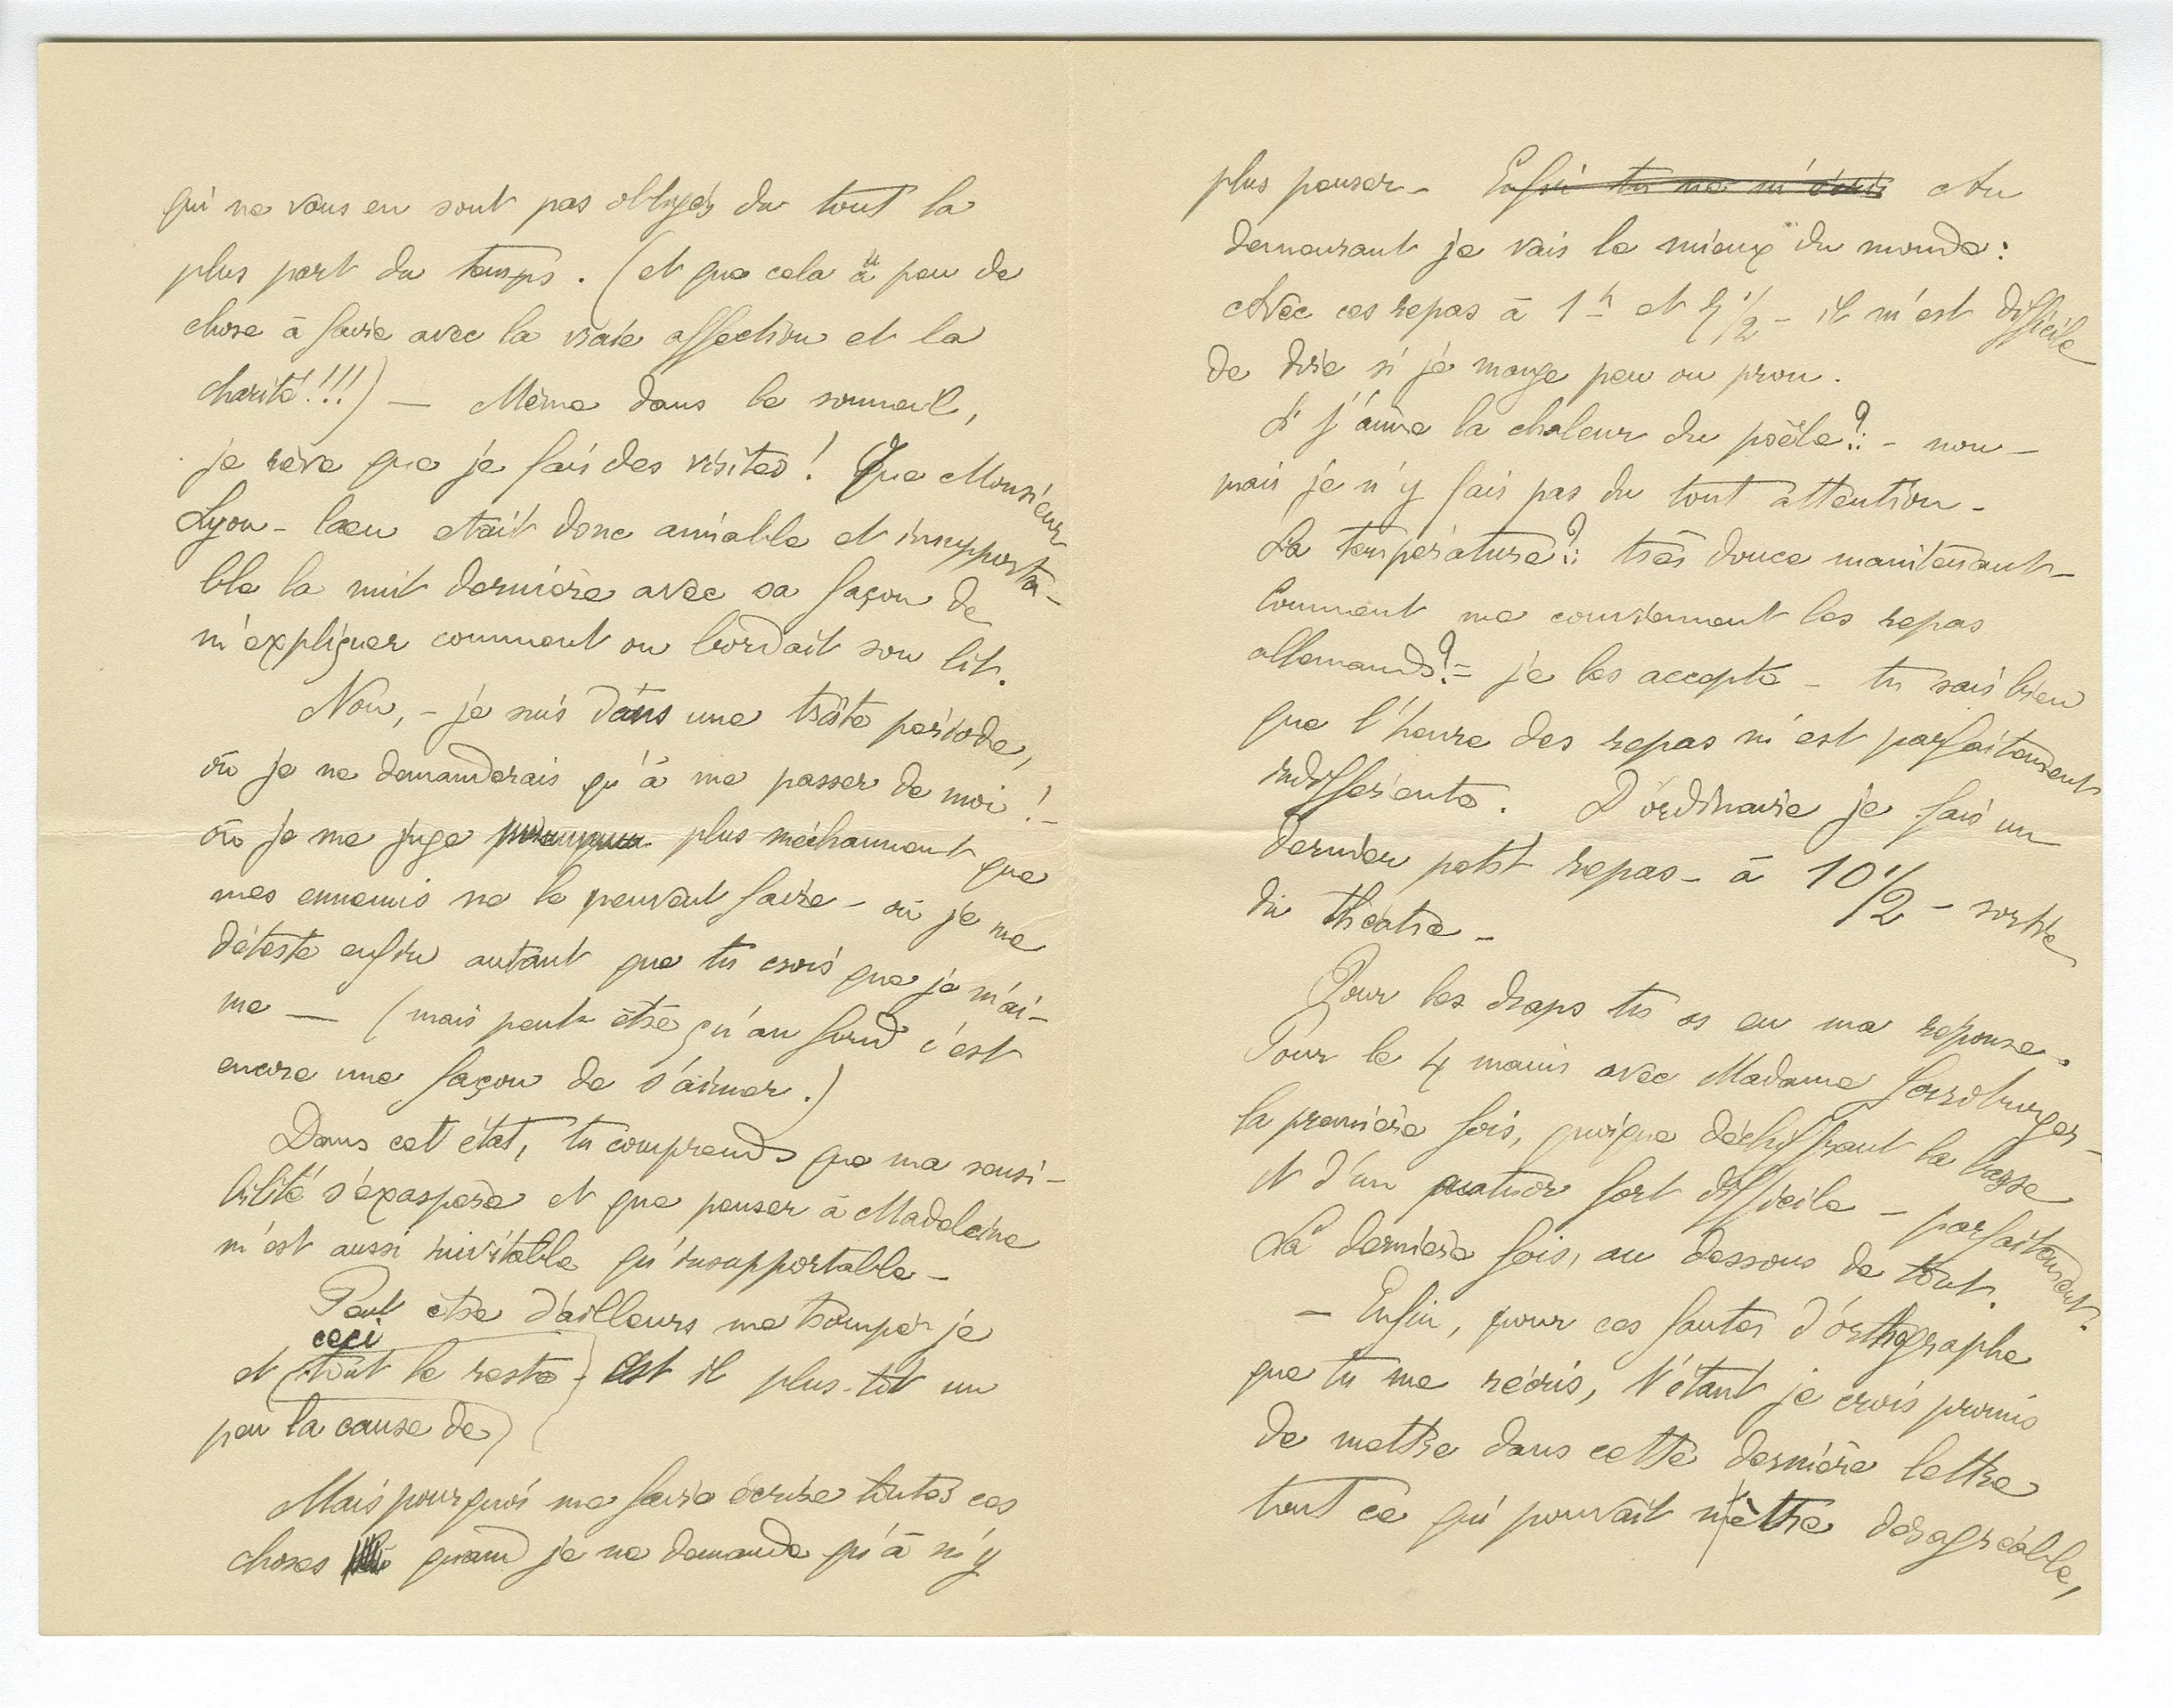 qui ne vous en sont pas obligés du tout la
plus part du temps. (et que cela a peu de
chose à faire avec la vraie affection et la
charité!!!) — Même dans le sommeil,
je rêve que je fais des visites! Que Monsieur
Lyon-Caen etait donc aimable et insupporta-
ble la nuit dernière avec sa façon de
m'expliquer comment on bordait son lit.
Non, - je suis dans une triste période,
où je ne demanderais qu'à me passer de moi! -
où je me juge plus méchamment que
mes ennemis ne le peuvent faire - où je me
déteste enfin autant que tu crois que je m'ai-
me — (mais peut être qu'au fond c'est
encore une façon de s'aimer.)
Dans cet état, tu comprends que ma sensi-
bilité s'éxaspère et que penser à Madeleine
m'est aussi inévitable qu'insupportable -
Peut être d'ailleurs me trompé-je
ceci
et (tout le reste) est il plus-tôt un
peu la cause de)
Mais pourquoi me faire écrire toutes ces
choses quand je ne demande qu'à n'y
plus penser - Enfin tu ne m'écris Au
demeurant je vais le mieux du monde:
Avec ces repas à 1h et 7 1/2 - il m'est difficile
de dire si je mange peu ou prou.
Si j'aime la chaleur du poële?: - non -
mais je n'y fais pas du tout attention -
La température?: très douce maintenant -
Comment me conviennent les repas
allemands? = je les accepte - tu sais bien
que l'heure des repas m'est parfaitement
indifférente. D'ordinaire je fais un
dernier petit repas - à 10 1/2 - sortie
du théâtre -
Pour les draps tu as eu ma reponse.
Pour le 4 mains avec Madame
la première fois, quoique déchiffrant la basse
et d'un quatuor fort difficile - parfaitement.
La dernière fois, au dessous de tout.
- Enfin, pour ces fautes d'orthographe
que tu me récris, t'étant je crois promis
de mettre dans cette dernière lettre
tout ce qui pouvait m'être désagréable,